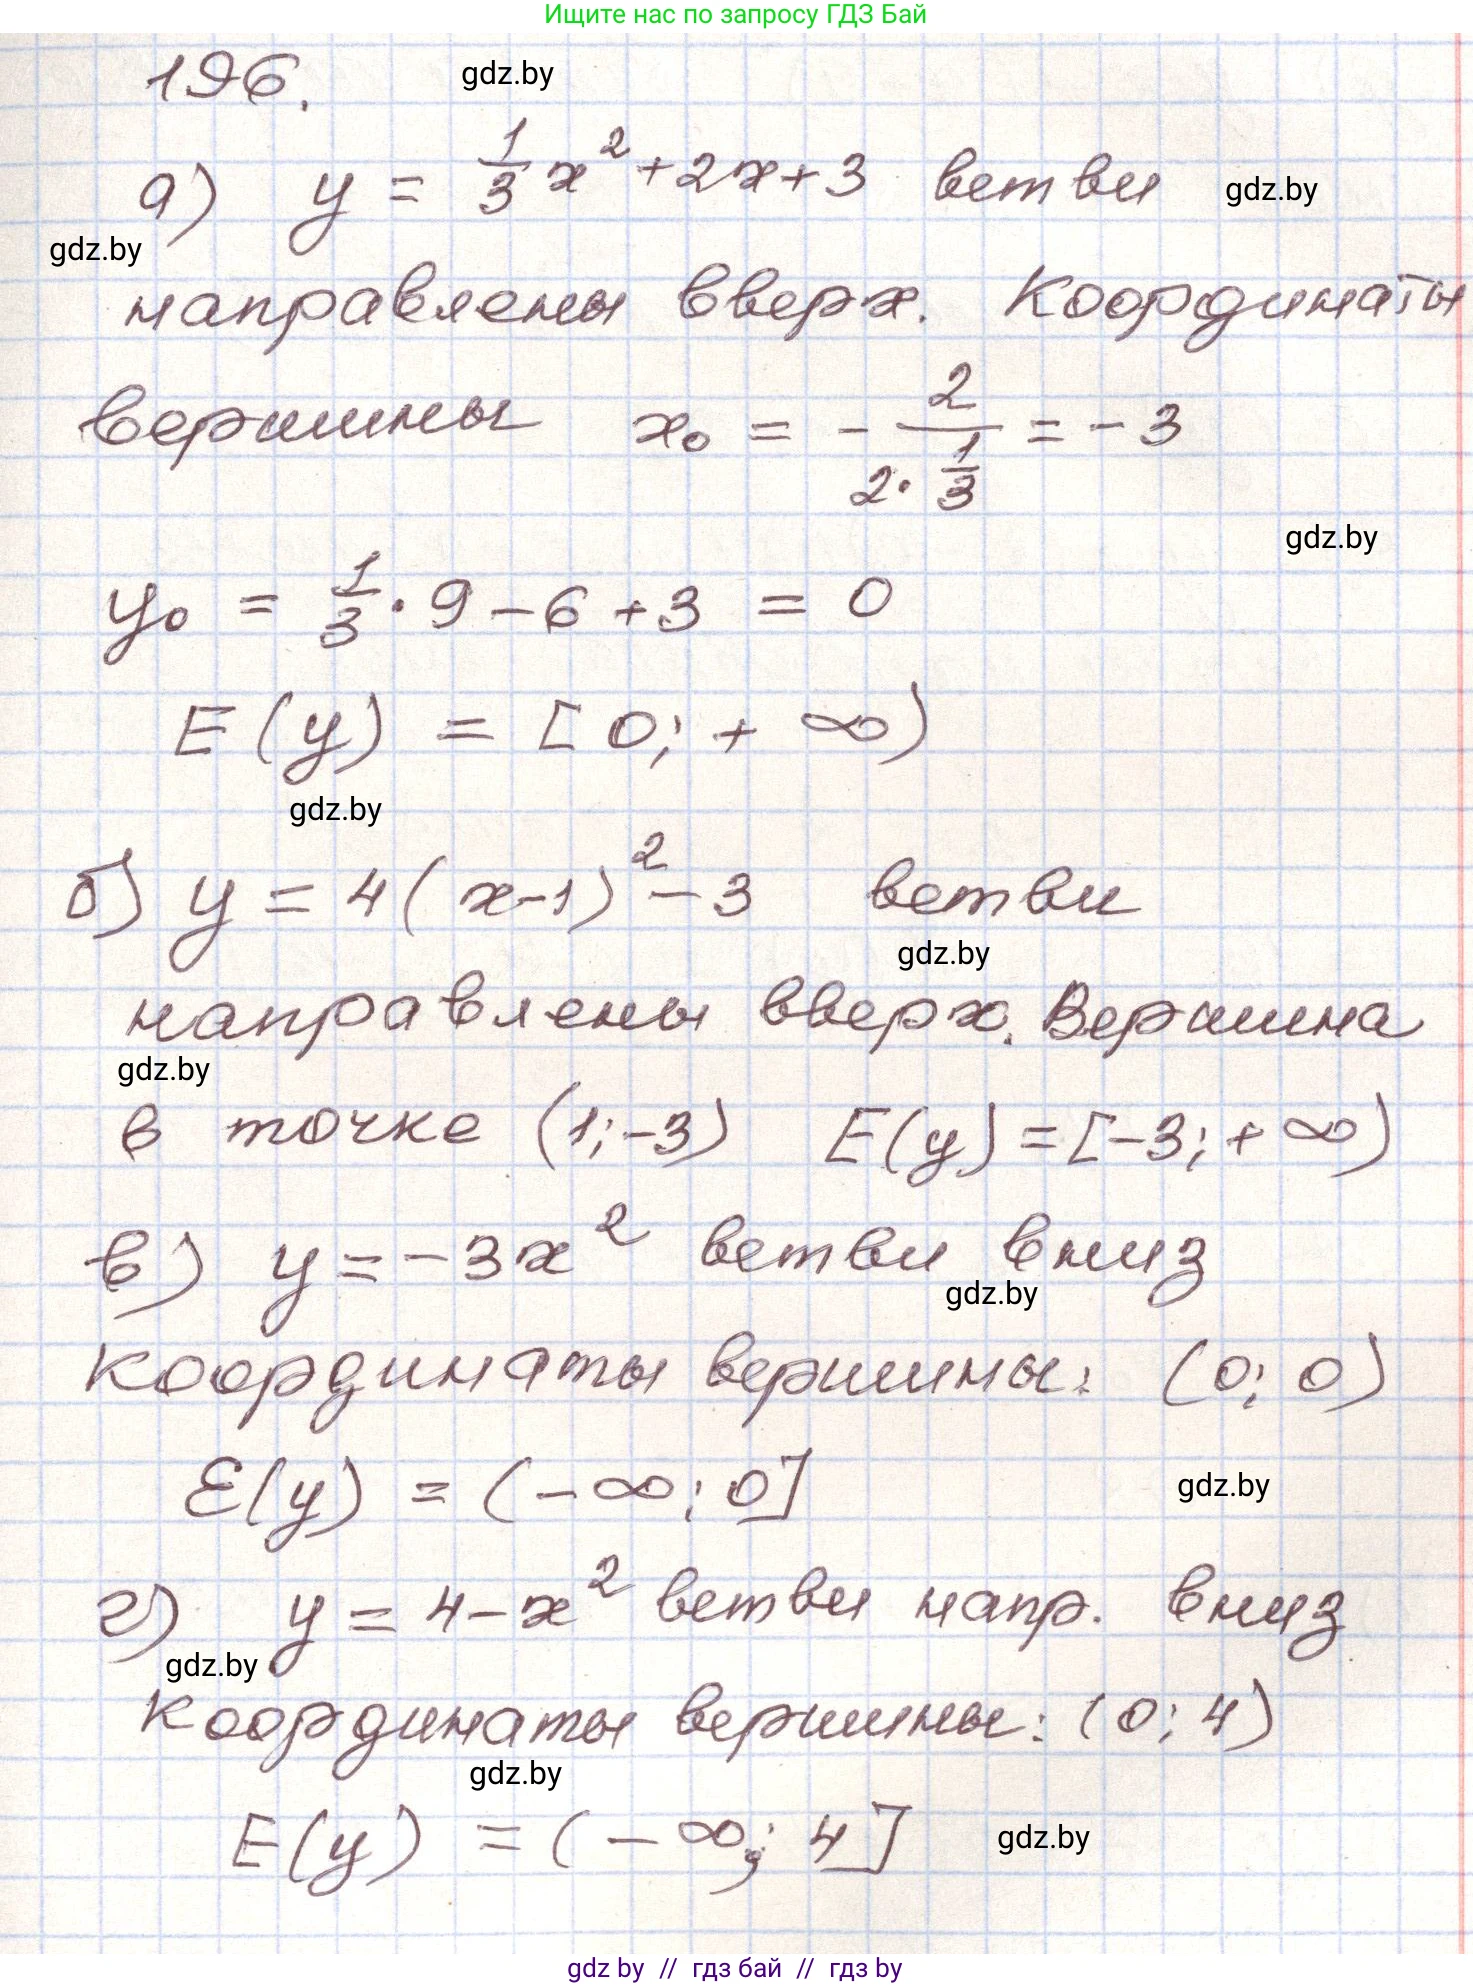 Ищите нас по запросу ГДЗ Бай
196.
gdz.by
а) y = 1/3 x² + 2x + 3 ветви
gdz.by
gdz.by
направлены вверх. Координаты
вершины x₀ = - 2/(2·1/3) = -3
gdz.by
y₀ = 1/3 · 9 - 6 + 3 = 0
E(y) = [0; +∞)
gdz.by
б) y = 4(x-1)² - 3 ветви
gdz.by
направлены вверх. Вершина
gdz.by
в точке (1; -3) E(y) = [-3; +∞)
в) y = -3x² ветви вниз
gdz.by
координаты вершины: (0; 0)
E(y) = (-∞; 0]
gdz.by
г) y = 4 - x² ветви напр. вниз
gdz.by
координаты вершины: (0; 4)
gdz.by
E(y) = (-∞; 4]
gdz.by
gdz by // гдз бай // гдз by